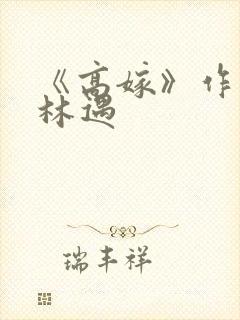 《高嫁》作
林遇
瑞丰祥